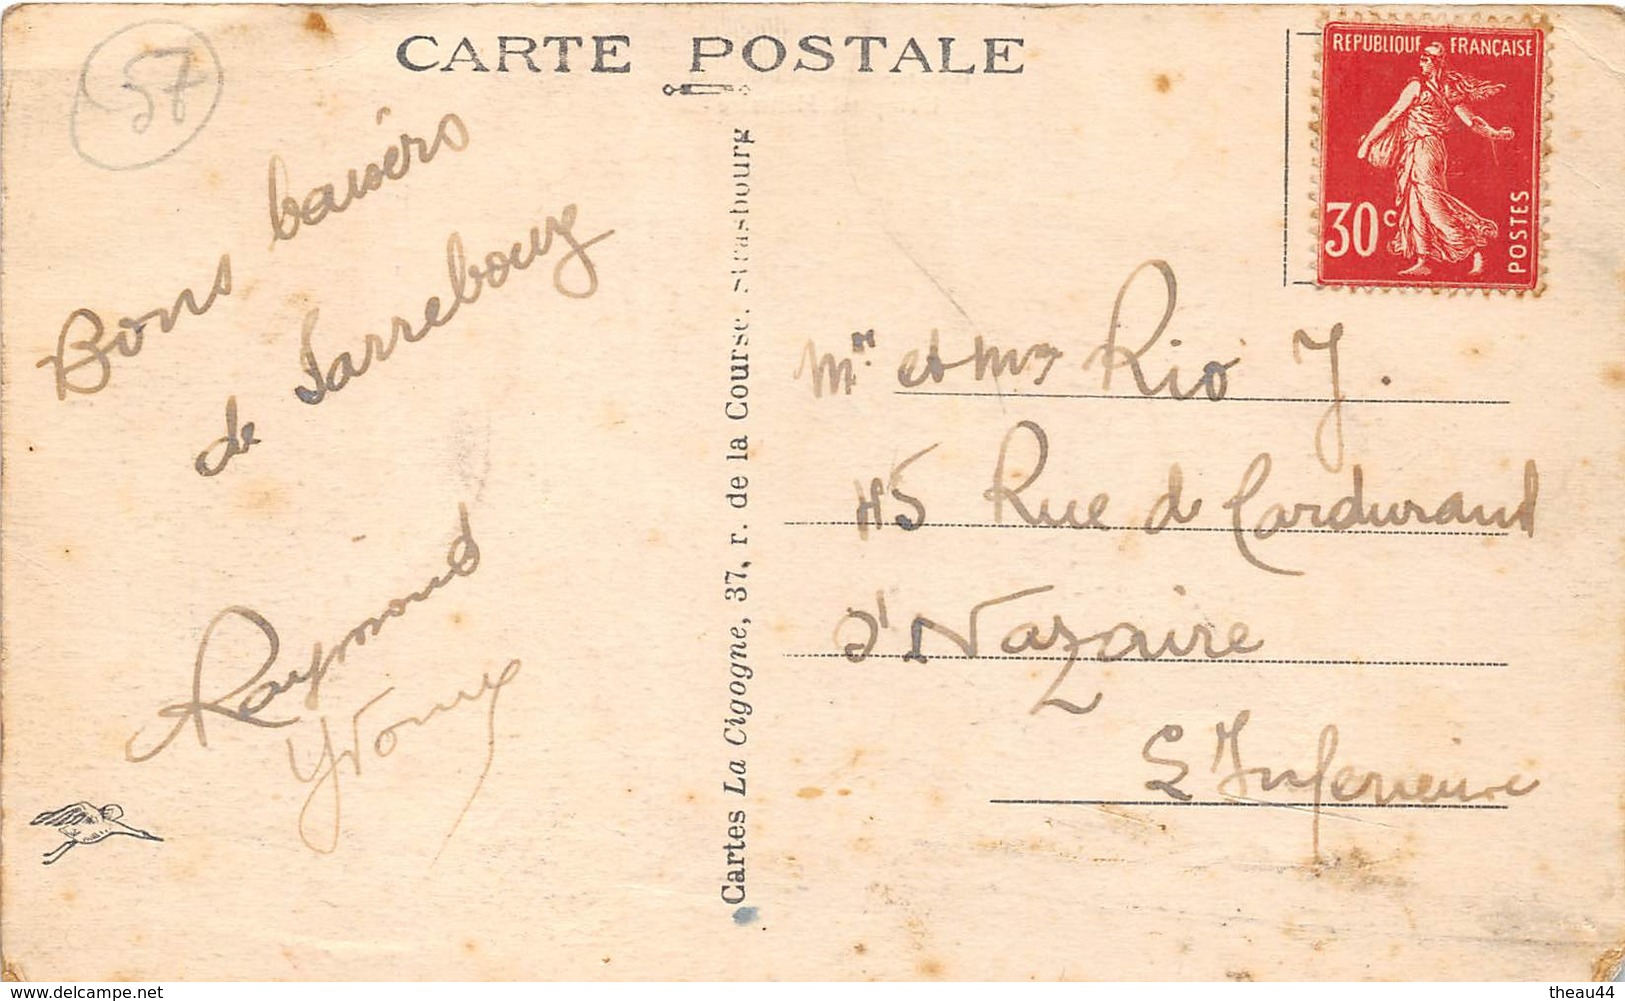 CARTE POSTALE
57
REPUBLIQUE FRANÇAISE
30c
POSTES
Bons baisers
de Sarrebourg
Raymond
Cartes La Cigogne, 37, r. de la Course, Strasbourg
Mr et Mme Rio J.
45 Rue de Cardurand
St Nazaire
L Inferieure
www.delcampe.net
theau44